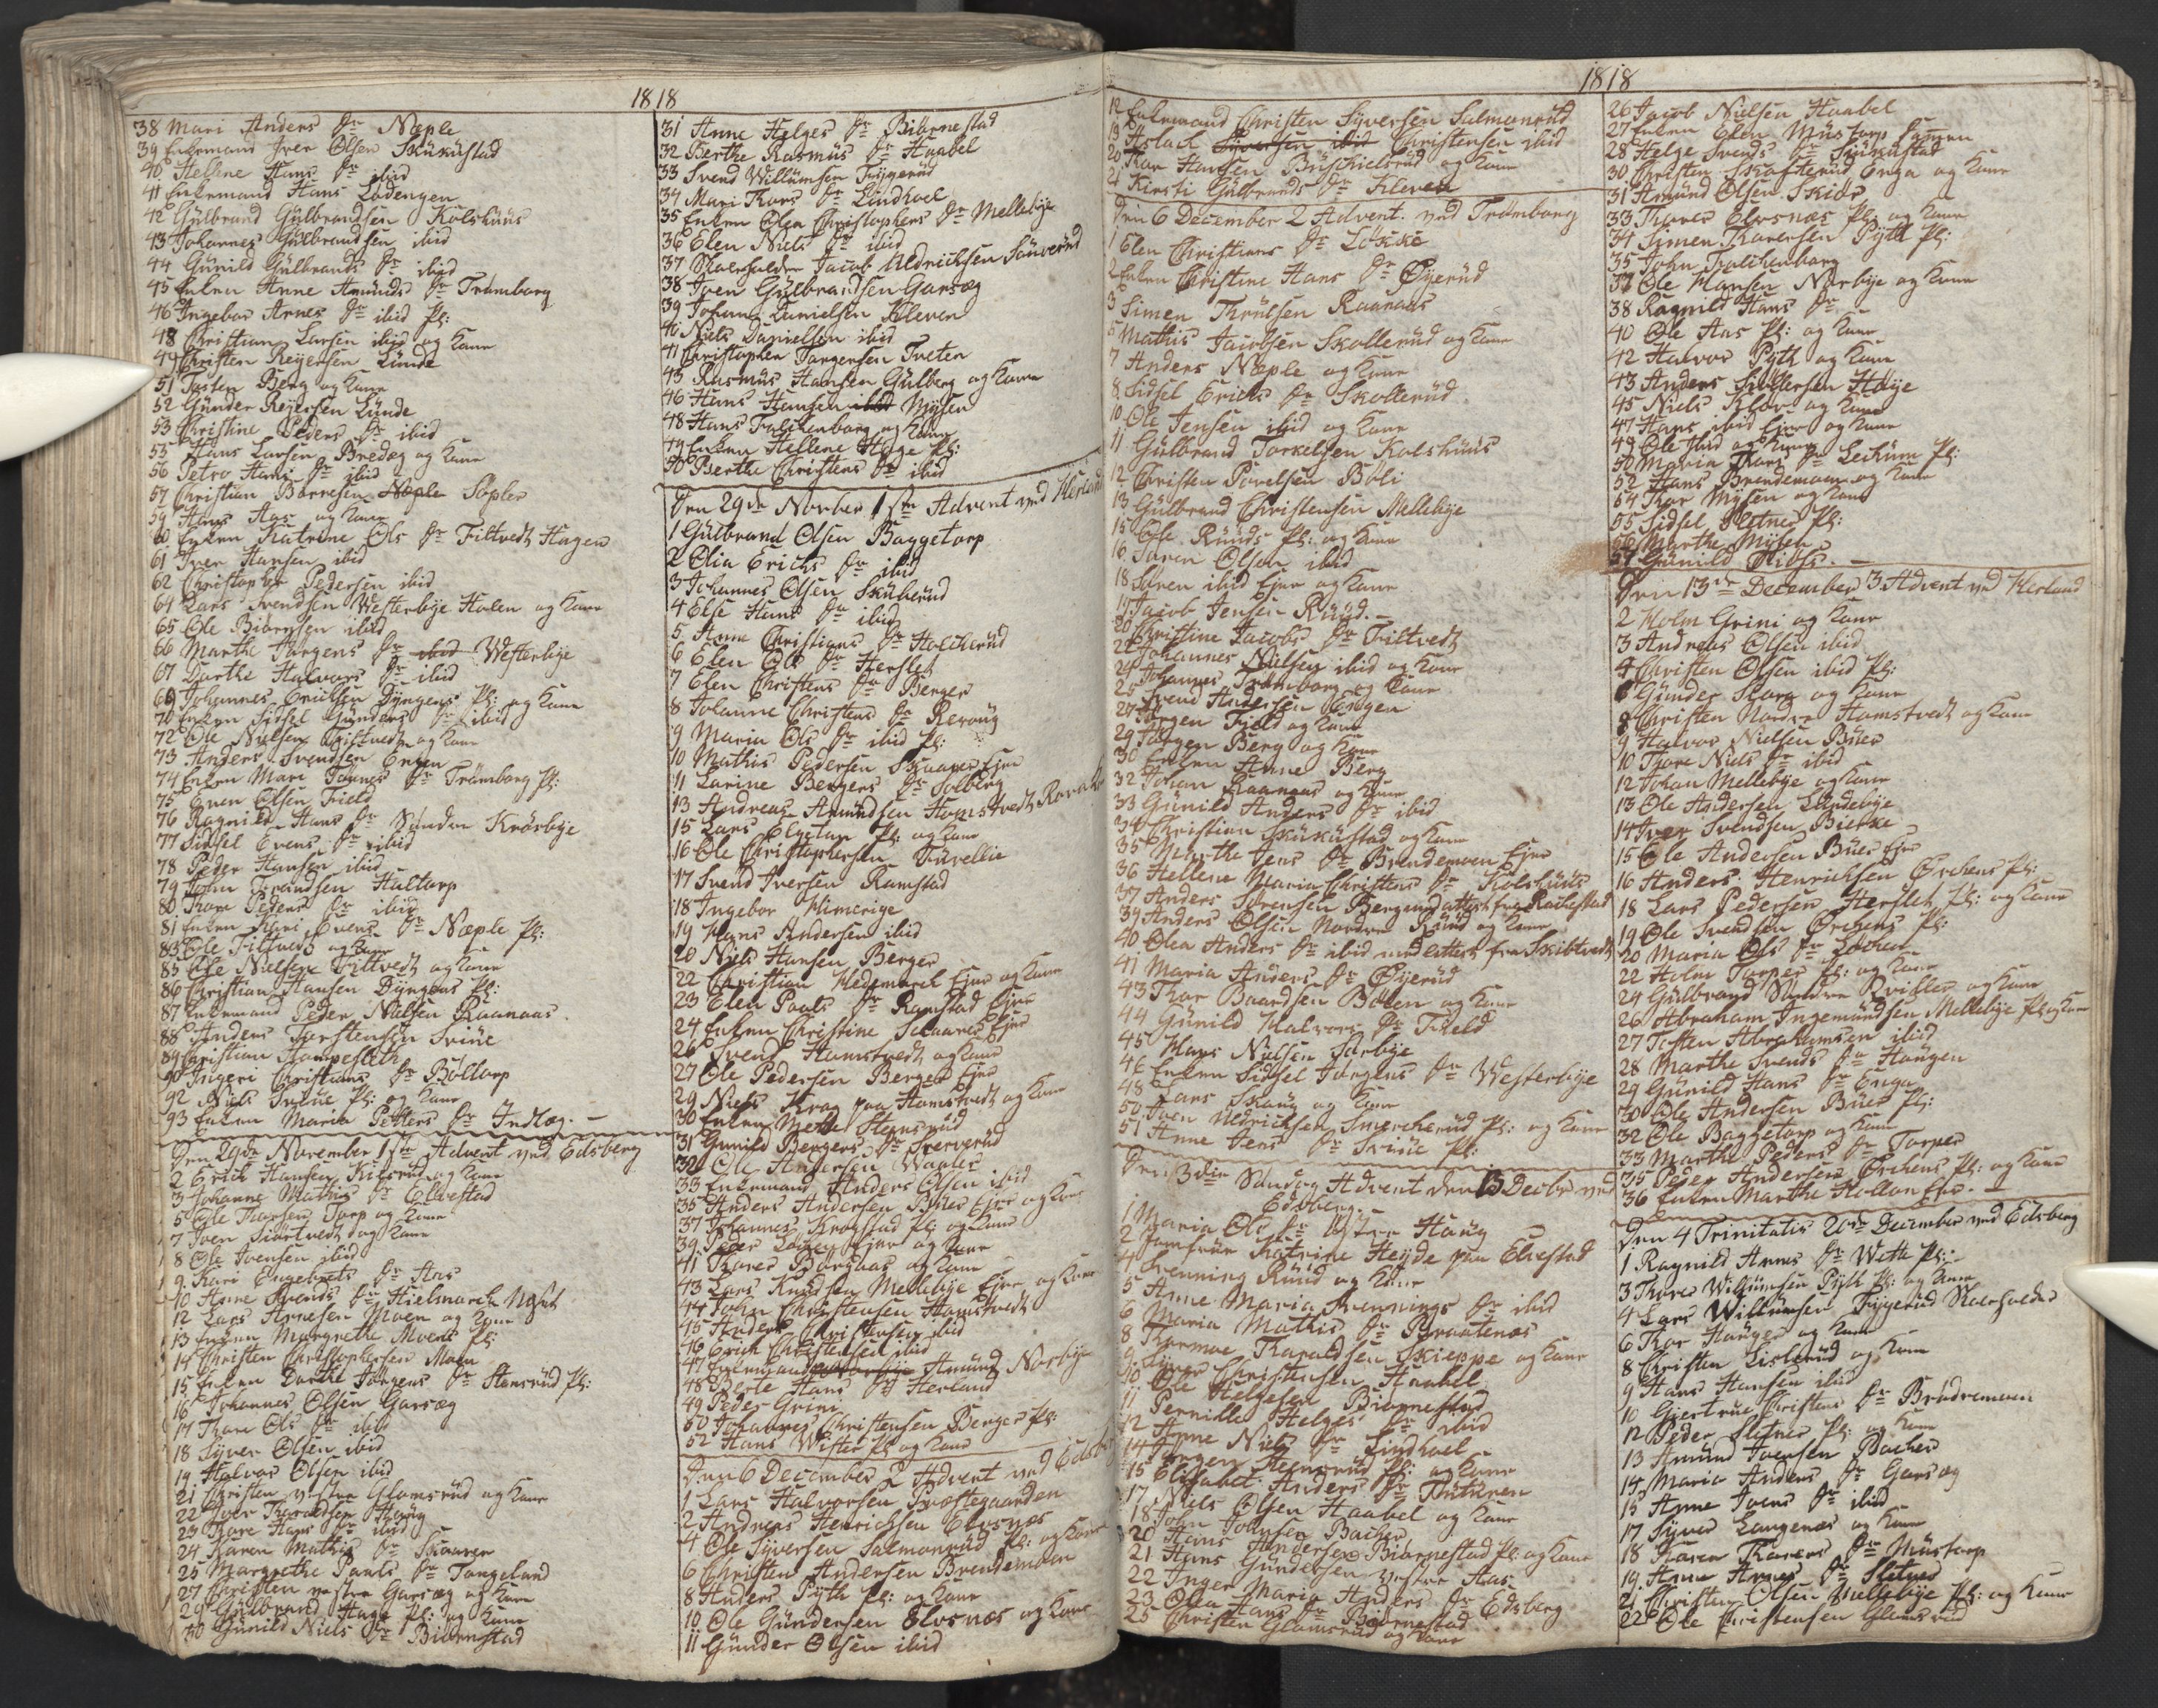 1818
38 Mari Anders Dr Næple
39 Enkemand Iver Olsen Skukustad
40 Hellene Hans Dr ibid
41 Enkemand Hans Lodengen
42 Gulbrand Gulbrandsen Kolshuus
43 Johannes Gulbrandsen ibid
44 Gunild Gulbrands Dr ibid
45 Enken Anne Amunds Dr Trømborg
46 Ingebor Arnes Dr ibid Pl:
48 Christian Larsen ibid og Kone
49 Christen Reyersen Lunde
51 Tosten Berg og Kone
52 Gunder Reyersen Lunde
53 Christine Peders Dr ibid
55 Hans Larsen Bredeg og Kone
56 Petro Hans Dr ibid
57 Christian Barnesen Næple Søpler
59 Hans Aas og Kone
60 Enken Katrine Ols Dr Tiltvedt Hagen
61 Iver Hansen ibid
62 Christopher Pedersen ibid
64 Lars Svendsen Westerbye Holen og Kone
65 Ole Biørnsen ibid
66 Marthe Jørgens Dr ibid Westerbye
67 Dorthe Halvors Dr ibid
69 Johannes Ericksen Dyngens Pl: og Kone
70 Enken Sidsel Gunders Dr ibid
72 Ole Nielsen Tiltvedt og Kone
73 Anders Svendsen Engen
74 Enken Mari Tønnes Dr Trømborg Pl:
75 Even Olsen Field
76 Ragnild Hans Dr Søndre Krosbye
77 Sidsel Evens Dr ibid
78 Peder Hansen ibid
79 John Frandsen Haltorp
80 Thore Peders Dr ibid
81 Enken Kari Evens Dr Næple Pl:
83 Ole Tiltvedt og Kone
85 Ole Nielsen Tiltvedt og Kone
86 Christian Hansen Dyngens Pl:
87 Enkemand Peder Nielsen Raanaas
88 Anders Torstensen Sviue
89 Christian Stompesleth
90 Ingeri Christians Dr Boltorp
92 Niels Sviue Pl: og Kone
93 Enken Maria Petters Dr Indlæg. —
Den 29de November 1ste Advent ved Edsberg
2 Erich Hansen Kilsrud og Kone
3 Johanne Mathis Dr Elvestad
5 Ole Thorsen Torp og Kone
7 Iven Siørtvedt og Kone
8 Ole Ivensen ibid
9 Kari Engebrets Dr Aas
10 Anne Svends Dr Hielmark Neset
12 Lars Arnesen Moen og Kone
13 Enken Margrethe Moens Pl:
14 Christen Christophersen Moen
15 Enken Dorthe Jørgens Dr Stensrud Pl:
16 Johannes Olsen Garsæg
17 Thore Ols Dr ibid
18 Syver Olsen ibid
19 Halvor Olsen ibid
21 Christen vestre Glomsrud og Kone
22 Iver Thoraldsen Haug
23 Thore Hans Dr ibid
24 Karen Mathis Dr Skaaren
25 Margrethe Pauls Dr Tangeland
27 Christen vestre Garsæg og Kone
29 Gulbrand Hage Pl: og Kone
30 Gunild Niels Dr Biørnestad
31 Anne Helges Dr Biørnestad
32 Berthe Rasmus Dr Haabel
33 Svend Willumsen Fryyerud
34 Mari Thors Dr Lundhoel
35 Enken Olea Christophers Dr Mellebye
36 Elen Niels Dr ibid
37 Skoleholder Jacob Uldrichsen Sauverud
38 Iven Gulbrandsen Garsæg
39 Johannes Danielsen Kleven
40 Niels Danielsen ibid
41 Christopher Jørgensen Tveten
43 Rasmus Hansen Gulberg og Kone
46 Hans Hansen ibid Mysen
48 Hans Falckenborg og Kone
49 Enken Hellene Helge Pl:
50 Berthe Christens Dr ibid
Den 29de Novber 1ste Advent ved Herland
1 Gulbrand Olsen Baggetorp
2 Olia Erichs Dr ibid
3 Johannes Olsen Skukerud
4 Else Hans Dr ibid
5 Anne Christians Dr Holckerud
6 Elen Ols Dr Herslet
7 Elen Christens Dr Berger
8 Johanne Christens Dr Revoug
9 Maria Ols Dr ibid Pl:
10 Mathis Pedersen Skaaner Eier
11 Larine Bergers Dr Solberg
13 Andreas Amundsen Homstvedt
15 Lars Elgetun Pl: og Kone
16 Ole Christophersen Furellie
17 Svend Iversen Ramstad
18 Ingebor Himerige
19 Hans Andersen ibid
20 Niels Hansen Berger
22 Christian Hedemarck Eier og Kone
23 Elen Pouls Dr Ramstad Eier
24 Enken Christine Skaares Eier
26 Svend Hamstvedt og Kone
27 Ole Pedersen Berger Eier
29 Niels Krog paa Homstvedt og Kone
30 Enken Mette Stensrud
31 Gunild Bergers Dr Sververud
32 Ole Andersen Wapler
33 Enkemand Anders Olsen ibid
35 Anders Andersen Buer Eier og Kone
37 Johannes Krogstad Pl: og Kone
39 Peder Eier og Kone
41 Thores og Kone
43 Lars Knudsen Mellebye Eier og Kone
44 John Christensen Hamstvedt
45 Anders Christensen ibid
46 Erich Christensen ibid
47 Enkemand Amund Norbye
48 Berte Hans Dr Herland
49 Peder Grini
50 Johannes Christensen Berger Pl:
52 Hans Wister Pl: og Kone
Den 6 December 2 Advent ved Edsberg
1 Lars Halvorsen Præstegaarden
2 Andreas Henrichsen Elvsnæs
4 Ole Syversen Salmonrud Pl: og Kone
6 Christen Andersen Brendemoen
8 Anders Pyth Pl: og Kone
10 Ole Gundersen Elvsnæs og Kone
11 Gunder Olsen ibid
1818
12 Enkemand Christen Syversen Salmonrud
19 Aslach Syversen ibid Christensen ibid
20 Thor Hansen Buskielsrud og Kone
21 Kirsti Gulbrands Dr Kleven
Den 6 December 2 Advent ved Trømborg
1 Elen Christians Dr Løkke
2 Enken Christine Hans Dr Øyerud
3 Simen Thrulsen Raanaas
5 Mathis Jacobsen Skollerud og Kone
7 Anders Næple og Kone
8 Sidsel Erichs Dr Skollerud
10 Ole Jensen ibid og Kone
11 Gulbrand Torkelsen Kolshuus
12 Christen Povelsen Boli
13 Gulbrand Christensen Mellebye
15 Ole Ruuds Pl: og Kone
16 Søren Olsen ibid
18 Søren ibid Eier og Kone
19 Jacob Jensen Ruud. —
20 Christine Jacobs Dr Tiltvedt
22 Johannes Nielsen ibid og Kone
24 Johannes Trømborg og Kone
25 Svend Andersen Engen
27 Jørgen Field og Kone
29 Jørgen Berg og Kone
30 Enken Anne Berg
32 Johan Raanaas og Kone
33 Gunild Anders Dr ibid
34 Christian Skukustad og Kone
35 Marthe Jens Dr Brendemoen Eier
36 Hellene Maria Christens Dr Kolshuus
37 Anders Sørensen Bergerud attest fra Rackestad
39 Anders Olsen Nordre Ruud og Kone
40 Olea Anders Dr ibid med attest fra Skibtvedt
41 Maria Anders Dr Øyerud
43 Thor Baardsen Bølen og Kone
44 Gunild Halvors Dr Field
45 Hans Nielsen Sørbye
46 Enken Sidsel Jørgens Dr Westerbye
48 Lars Skaug og Kone
50 Iven Uldrichsen Smerckerud Pl: og Kone
51 Anne Jens Dr Sviue Pl:
Den 3die Søndag Advent den 13 Decbr ved
Edsberg. —
1 Maria Ols Dr Østre Haug
2 Jomfrue Katrine Heyde paa Elvestad
4 Svenning Ruud og Kone
5 Anne Maria Svennings Dr ibid
6 Maria Mathis Dr Braatenæs
8 Thormoe Tharaldsen Skieppe og Kone
9 Syver Christensen Haabel
10 Ole Helgesen Biørnestad
11 Pernille Helges Dr ibid
12 Anne Niels Dr Lindhoel
14 Jørgen Steensrud Pl: og Kone
15 Elisabet Anders Dr
17 Niels Olsen Haabel og Kone
18 John Johnsen Backer
20 Hans Andersen Biørnestad Pl: og Kone
21 Hans Gundersen vestre Aas
22 Inger Maria Anders Dr Edsberg
23 Olea Hans Dr Biørnestad
25 Christen Glomsrud og Kone
26 Jacob Nielsen Haabel
27 Enken Elen Mustorp
28 Helge Svends Dr Skukustad
30 Christen Skofterud Enga og Kone
31 Amund Olsen Skiør
33 Thores Elvsnæs Pl: og Kone
34 Simen Thoresen Pyth Pl:
35 John Falckenborg
37 Ole Hansen Norbye og Kone
38 Ragnild Hans Dr
40 Ole Aas Pl: og Kone
42 Halvor Pyth og Kone
43 Anders Høye
45 Niels Kløv og Kone
47 Hans ibid Eier og Kone
49 Ole ibid og Kone
50 Maria Thors Dr Leikum Pl:
52 Hans Brendemoen og Kone
54 Thor Mysen og Kone
55 Sidsel Sletner Pl:
56 Marthe Mysen
57 Gunild —
Den 13de December 3 Advent ved Herland
2 Holm Grini og Kone
3 Andreas Olsen ibid
4 Christen Olsen ibid Pl:
6 Gunder Skorg og Kone
8 Christen Nordre Hamstvedt og Kone
9 Halvor Nielsen Buer
10 Thore Niels Dr ibid
12 Johan Mellebye og Kone
13 Ole Andersen Lundebye
14 Iver Svendsen Bierke
15 Ole Andersen Buer Eier
16 Anders Henrichsen Ørckens Pl:
18 Lars Pedersen Herslet Pl: og Kone
19 Ole Svendsen Ørckens Pl:
20 Maria Ols Dr
22 Holm Torper Pl: og Kone
24 Gulbrand Søndre og Kone
26 Abraham Ingemundsen Mellebye Pl: og Kone
27 Tosten Abrahamsen ibid
28 Marthe Svends Dr Haugen
29 Gunild Hans Dr Enga
30 Ole Andersen Buer Pl:
32 Ole Baggetorp og Kone
33 Marthe Peders Dr Torper
35 Peder Andersen Ørckens Pl: og Kone
36 Enken Marthe Kollon Eie. —
Den 4 Trinitatis 20de December ved Edsberg
1 Ragnild Arnes Dr Wette Pl:
3 Thores Willumsen Pyth Pl: og Kone
4 Lars Willumsen Fryyerud Skoleholder
6 Thor Hauger og Kone
8 Christen Lislerud og Kone
9 Hans Hansen ibid
10 Giertrue Christens Dr Brødremoen
12 Peder Sletner Pl: og Kone
13 Amund Ivensen Backer
14 Maria Anders Dr Garsæg
15 Anne Ivers Dr ibid
17 Syver Langenæs og Kone
18 Karen Thorers Dr Mustorp
19 Anne Arnes Dr Sletner
21 Christen Olsen Mellebye Pl: og Kone
22 Ole Christensen Glomsrud